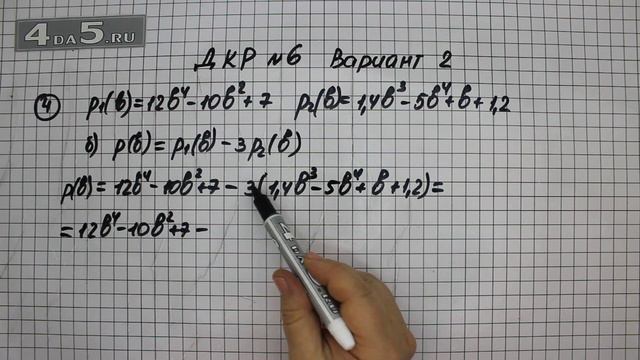 4DA5.RU
ДКР №6 Вариант 2
④ p₁(b)=12b⁴-10b²+7 p₂(b)=1,4b³-5b⁴+b+1,2
б) p(b)=p₁(b)-3p₂(b)
p(b)=12b⁴-10b²+7-3(1,4b³-5b⁴+b+1,2)=
=12b⁴-10b²+7-